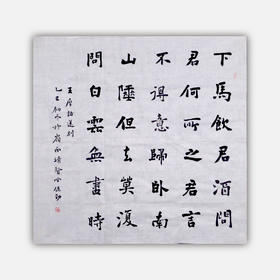 下馬飲君酒問
君何所之君言
不得意歸臥南
山陲但去莫復
問白雲無盡時
王摩詰送別